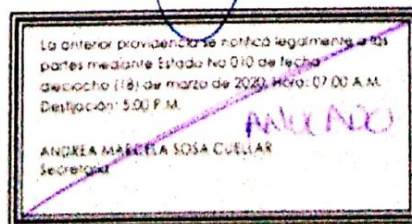 La anterior providencia se notificó legalmente a las
partes mediante Estado No 010 de fecha
dieciocho (18) de marzo de 2020, Hora: 07:00 A.M.
Desfijación: 5:00 P.M.
ANULADO
ANDREA MARCELA SOSA CUELLAR
Secretaria